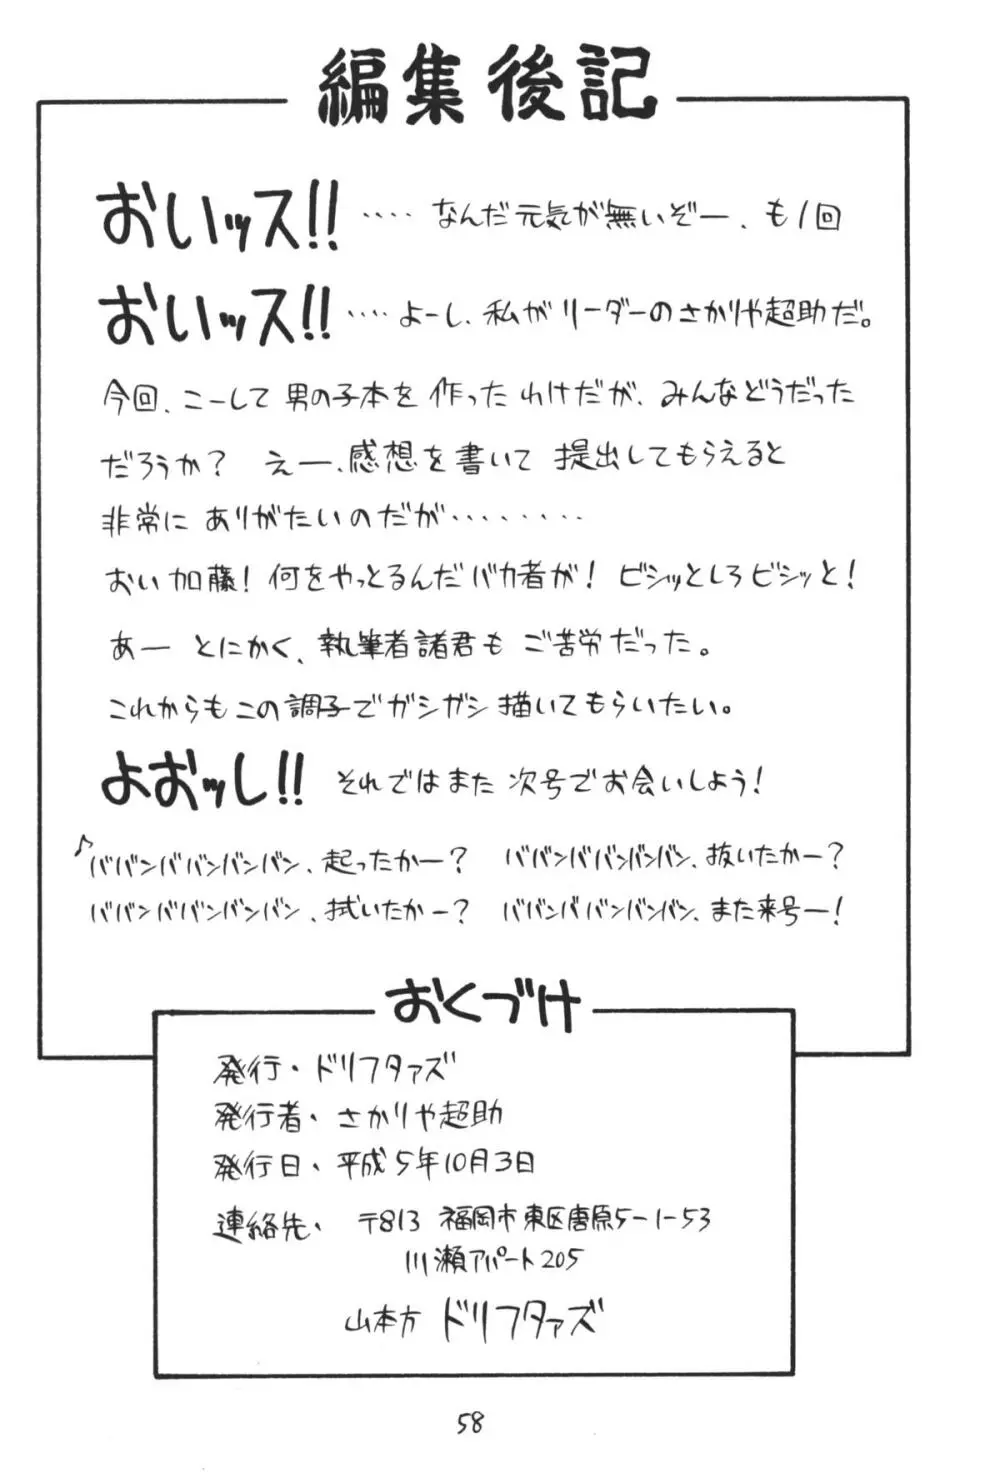 編集後記
おいッス!! ‥‥ なんだ元気が無いぞー、も1回
おいッス!! ‥‥よーし、私がリーダーのさかりや超助だ。
今回、こーして男の子本を作ったわけだが、みんなどうだった
だろうか? えー、感想を書いて提出してもらえると
非常にありがたいのだが‥‥‥‥
おい加藤!何をやっとるんだバカ者が!ビシッとしろビシッと!
あー とにかく、執筆者諸君もご苦労だった。
これからもこの調子でガシガシ描いてもらいたい。
よおッし!! それではまた次号でお会いしよう!
♪ババンババンバンバン、起ったかー? ババンババンバンバン、抜いたかー?
ババンババンバンバン、拭いたかー? ババンババンバンバン、また来号ー!
おくづけ
発行・ドリフタァズ
発行者・さかりや超助
発行日・平成5年10月3日
連絡先・ 〒813 福岡市東区唐原5-1-53
川瀬アパート205
山本方 ドリフタァズ
58